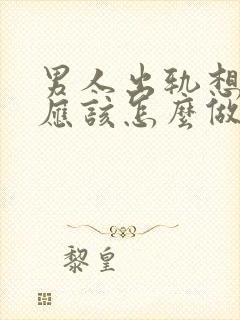 男人出轨想
应該怎麼做
黎皇